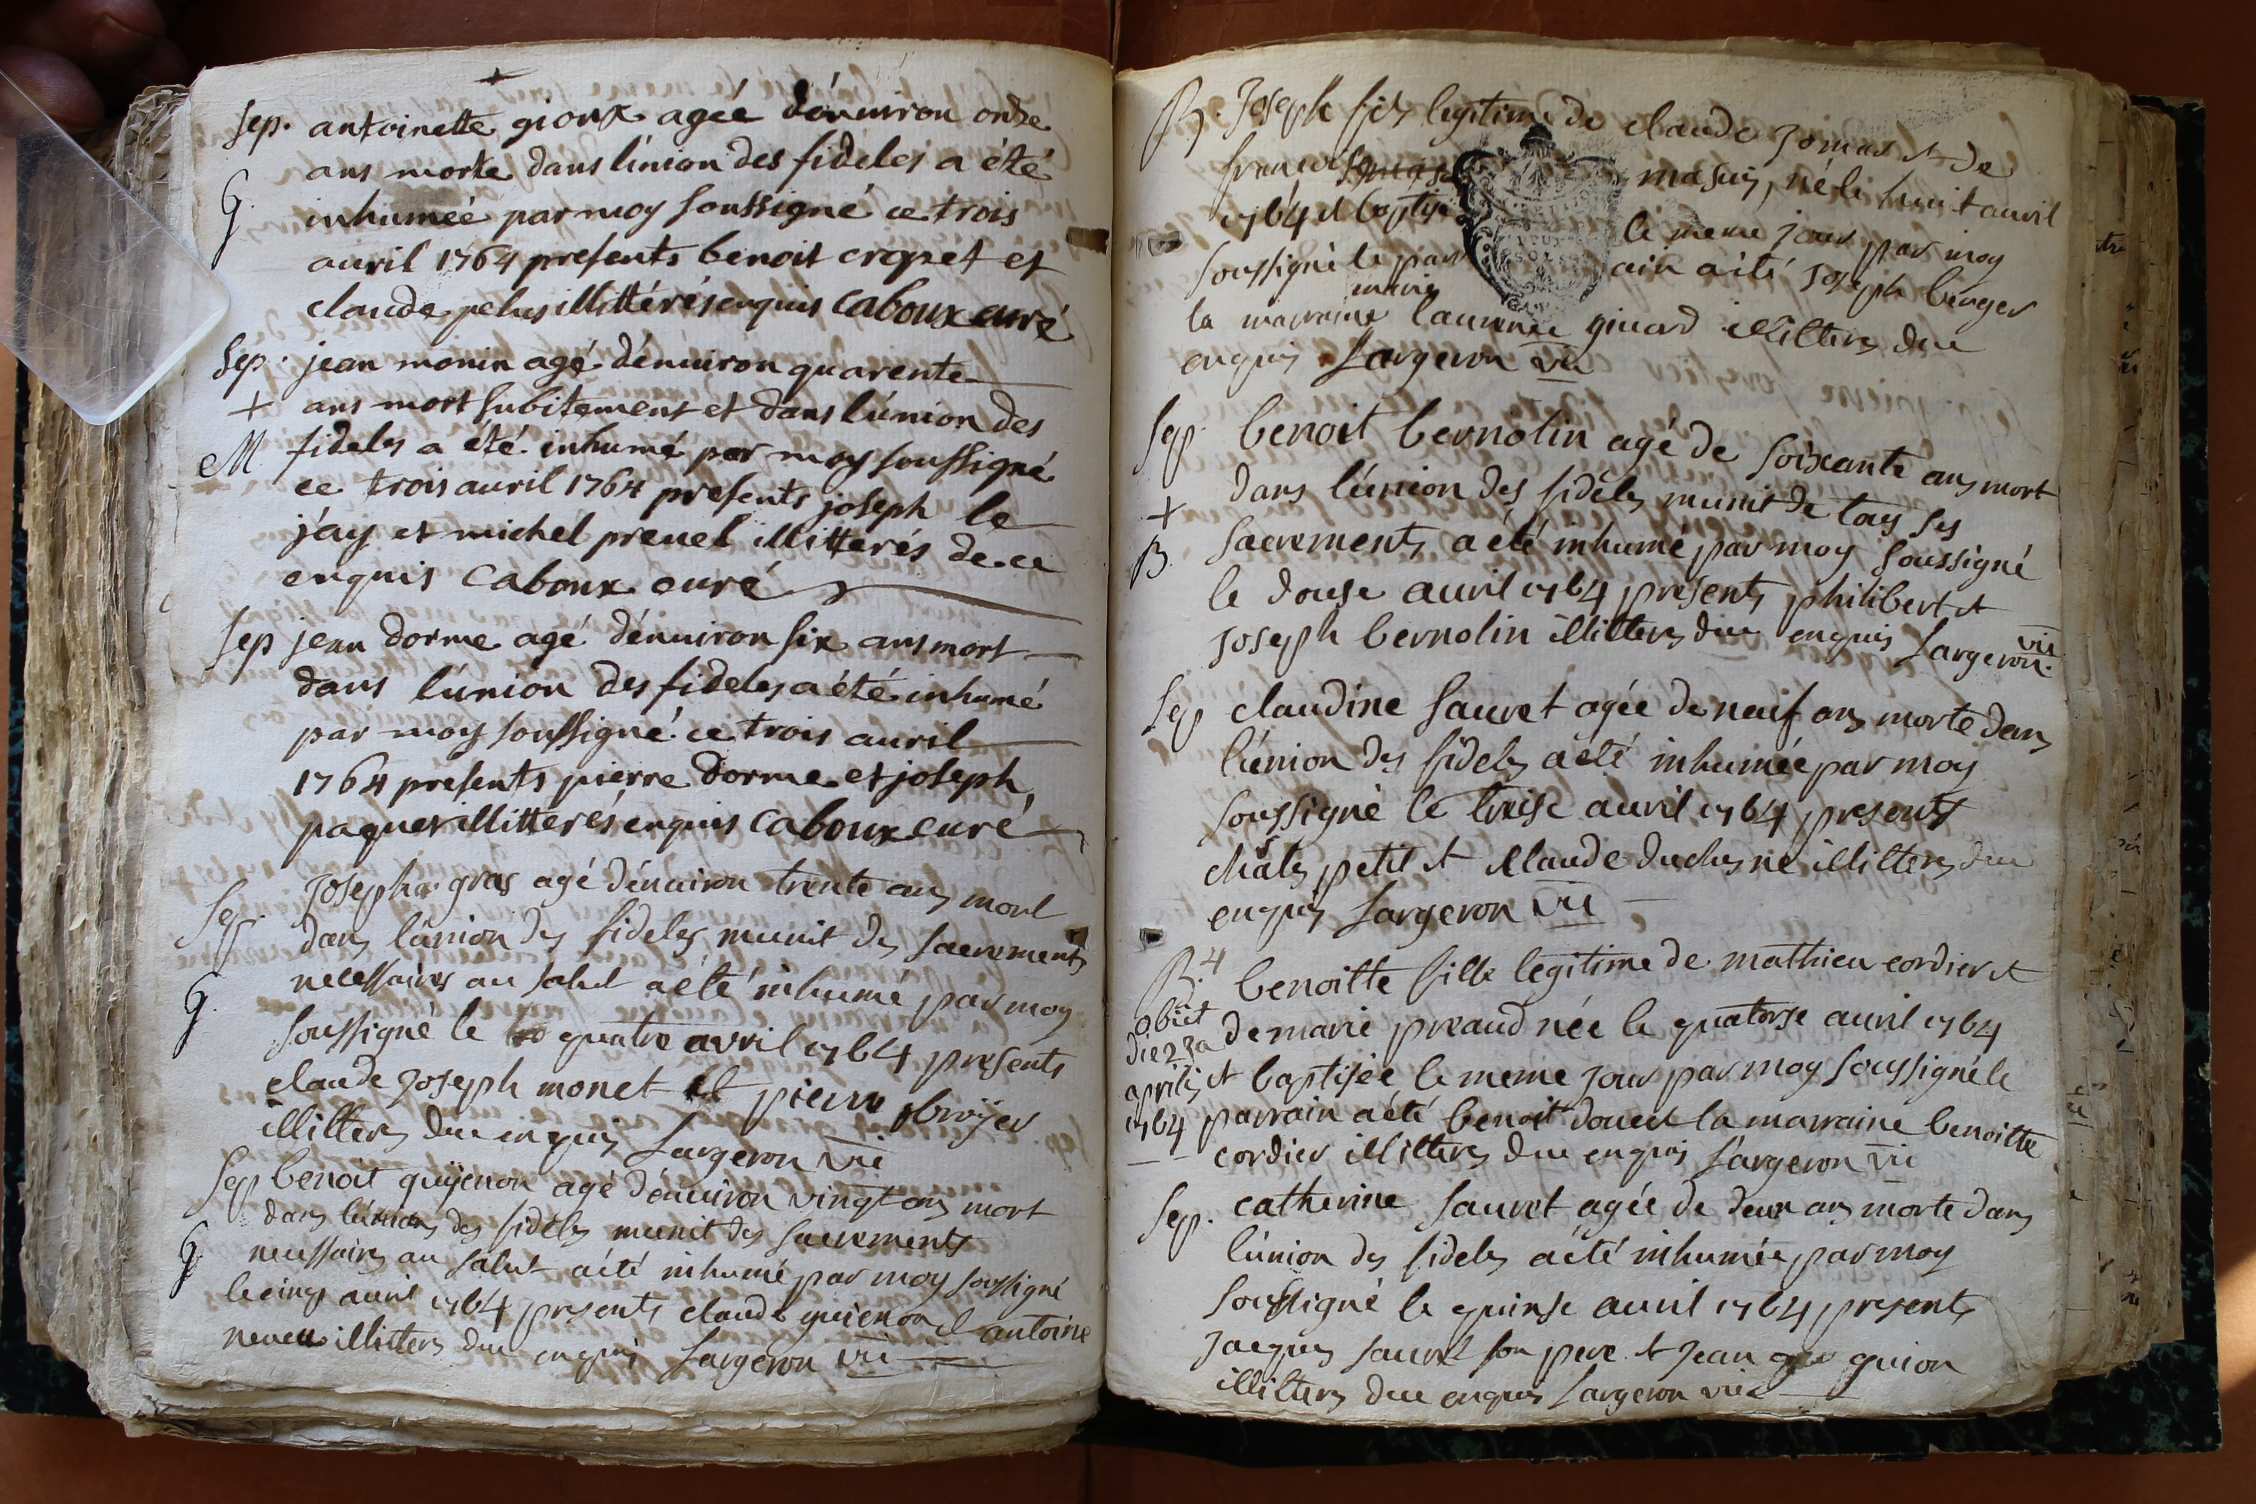 Sep. antoinette gioux agée d'énuiron onze
ans morte dans l'únion des fideles a été
G. inhumée par moy soussigné ce trois
auril 1764 presents benoit crozet et
claude pelus illittérés enquis Caboux curé
Sep. jean monin agé d'énuiron quarente
+ ans mort subitement et dans l'únion des
M fideles a été inhumé par moy soussigné
ce trois auril 1764 presents joseph le
jay et michel preuel illitterés de ce
enquis Caboux curé
Sep jean dorme agé d'énuiron six ans mort
dans l'únion des fideles a été inhumé
par moy soussigné ce trois auril
1764 presents pierre dorme et joseph
paquet illitterés enquis Caboux curé
Sep. Joseph gras agé d'énuiron trente ans mort
dans l'únion des fideles munit des sacrements
G. necessaires au salut a été inhumé par moy
soussigné le quatre avril 1764 presents
claude Joseph monet et pierre
illitteres due enquis Largeron vic
Sep benoit guÿenon agé d'énuiron vingt ans mort
dans l'únion des fideles munit des sacrements
G necessaires au salut a été inhumé par moy soussigné
le cinq auril 1764 presents claude guienon et antoine
neveu illitteres due enquis Largeron vic
B. Joseph fils legitime de claude et de
masuy, né le huit auril
1764 et baptisé le meme jour par moy
soussigné le parrain a été Joseph berger
marie
la marraine laurence giuard illitteres due
enquis Largeron vic
Sep. benoit bernolin agé de soixante ans mort
+ dans l'únion des fideles munit de tous ses
B. sacrements a été inhumé par moy soussigné
le douse auril 1764 presents philibert et
Joseph bernolin illitteres due enquis Largeron vic
Sep claudine sauret agée de neuf ans morte dans
l'únion des fideles a été inhumée par moy
soussigné le treise auril 1764 presents
petit et claude duchesne illitteres due
enquis Largeron vic
B. 4 benoitte fille legitime de mathieu cordier et
obiit de marie preaud née le quatorse auril 1764
die 23a et baptisée le meme jour par moy soussigné le
aprilis parrain a été benoit douert la marraine benoitte
1764 cordier illitteres due enquis Largeron vic
Sep. catherine sauret agée de deux ans morte dans
l'únion des fideles a été inhumée par moy
soussigné le quinse auril 1764 presents
Jacques sauret son pere et Jean guion
illitteres due enquis Largeron vic